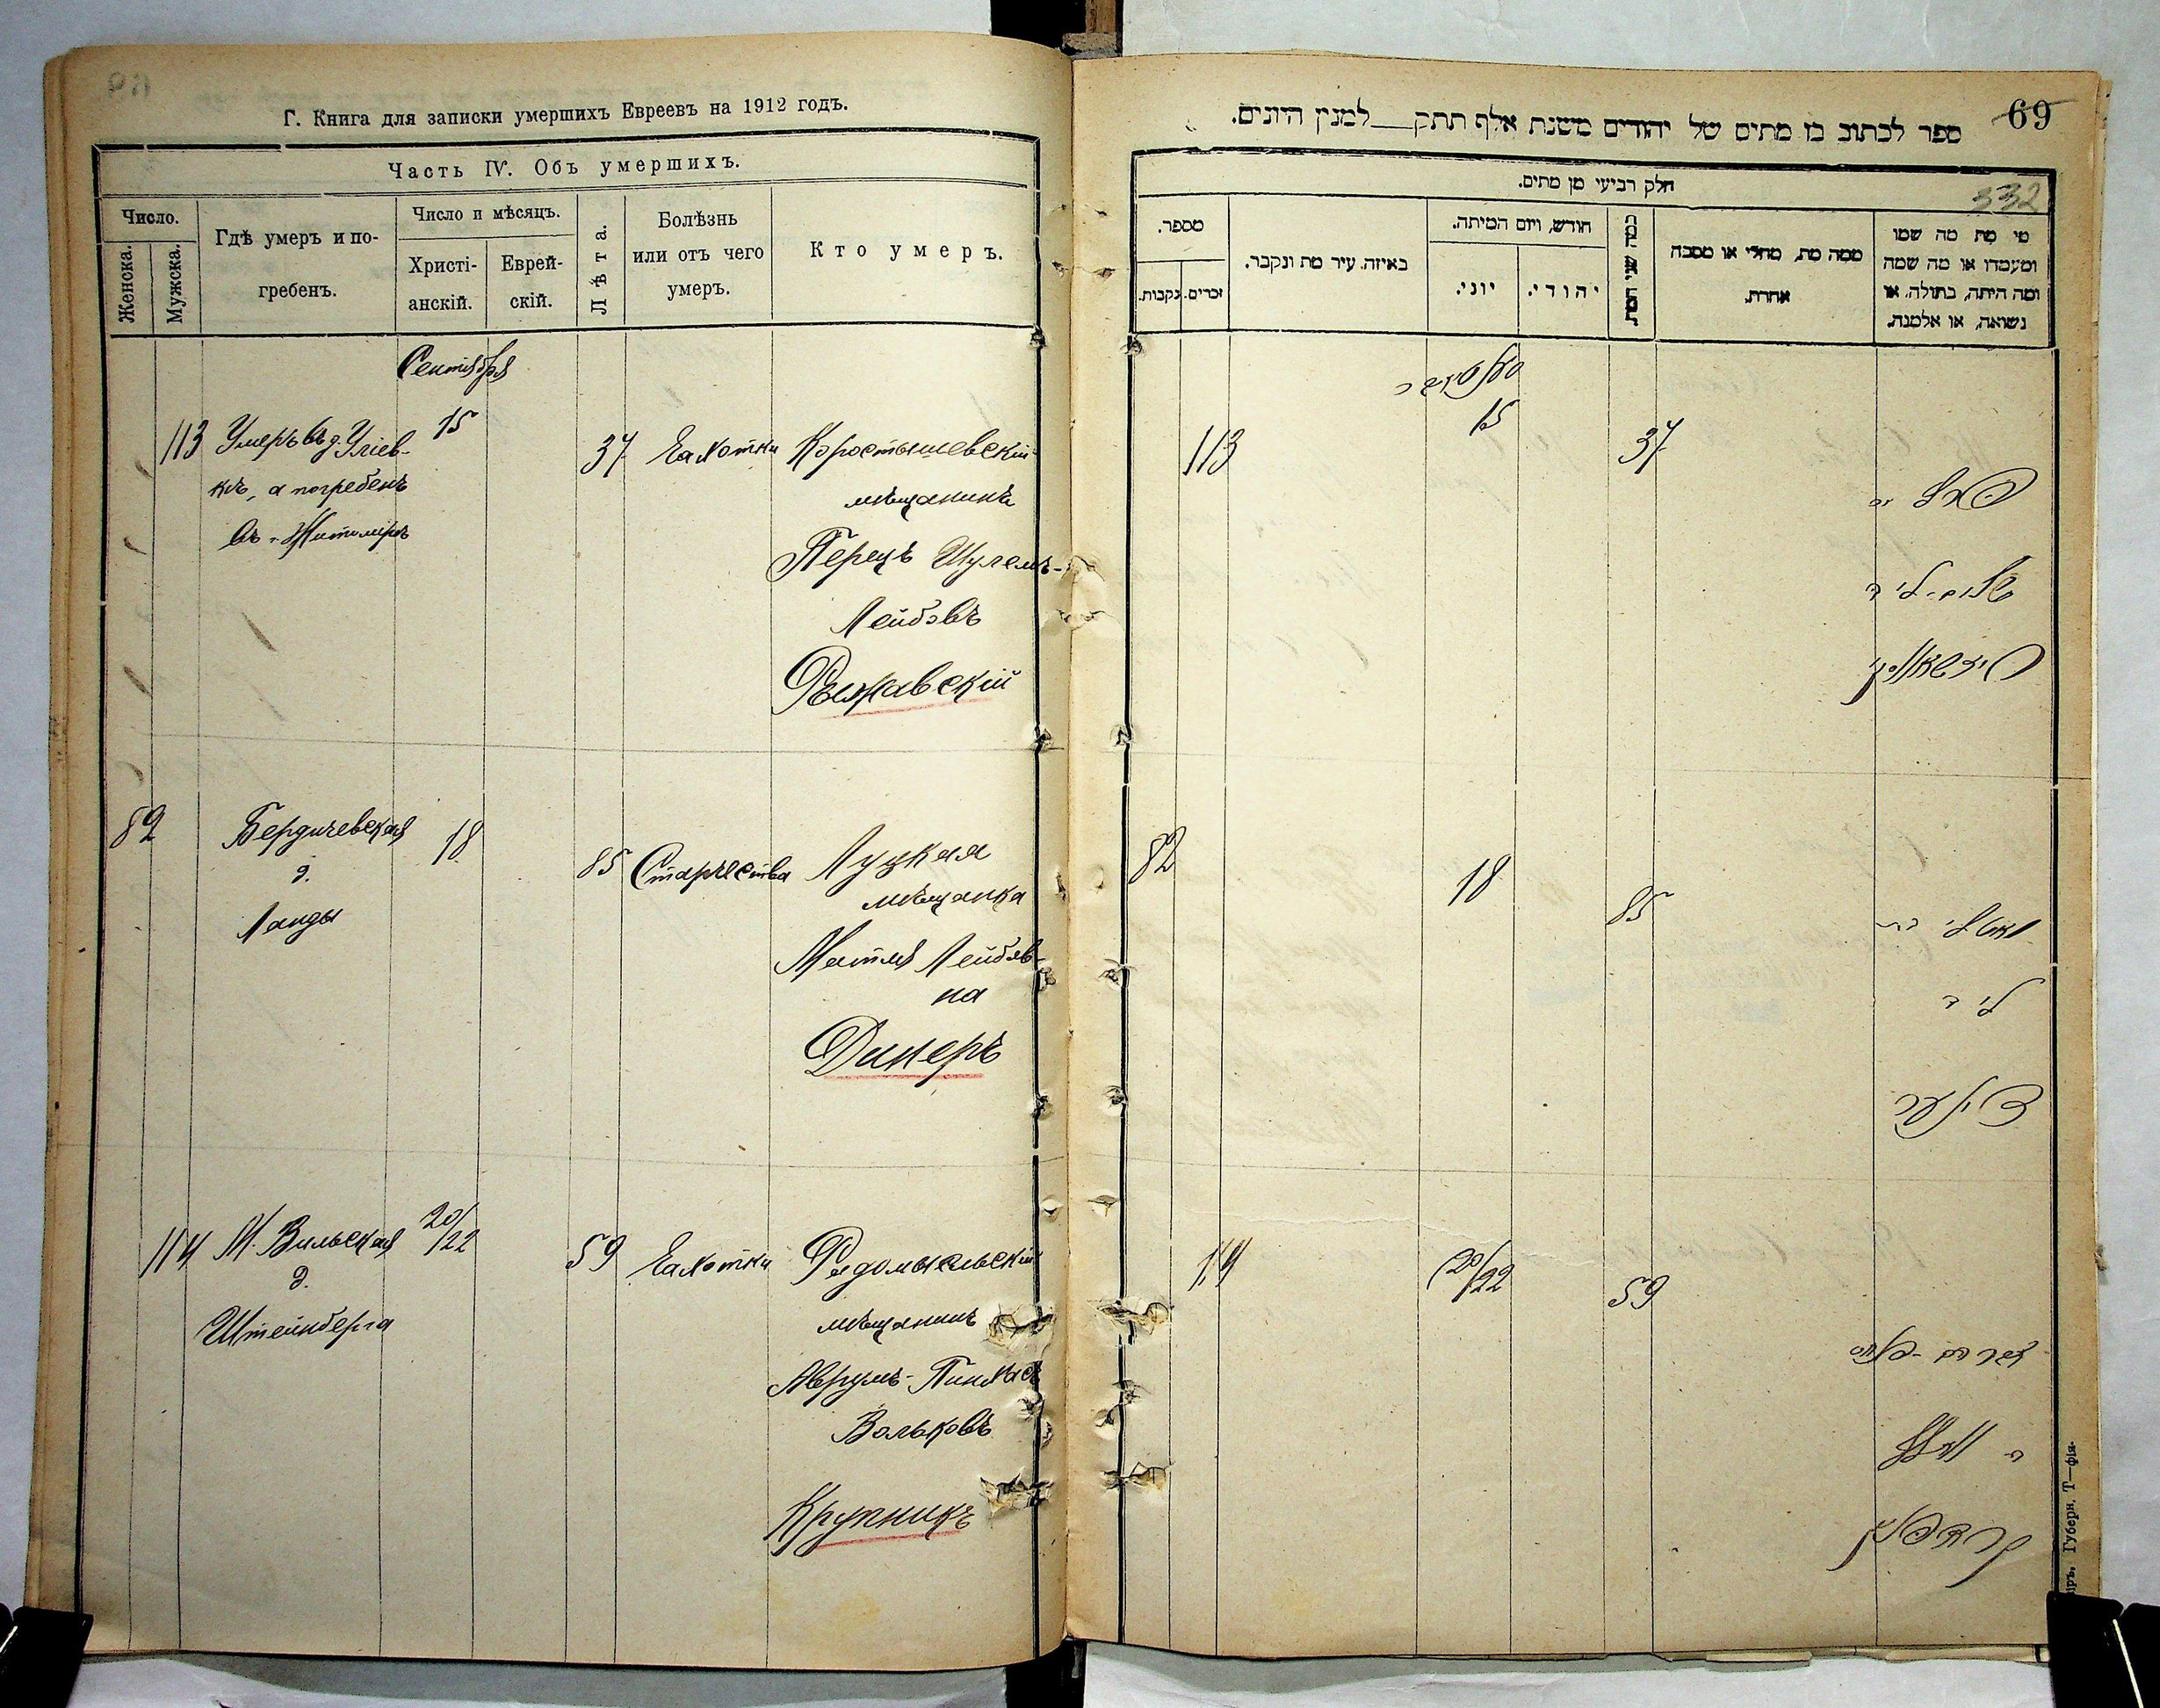 Г. Книга для записки умершихъ Евреевъ на 1912 годъ.
Часть IV. Объ умершихъ.
Число.
Женска.
Мужска.
Гдѣ умеръ и по-
гребенъ.
Число и мѣсяцъ.
Христі-
анскій.
Еврей-
скій.
Лѣта.
Болѣзнь
или отъ чего
умеръ.
Кто умеръ.
Сентября
113
Умеръ въ д.
кѣ, а погребенъ
въ г. Житомирѣ
15
37
Чахотки
Коростышевскій
мѣщанинъ
Перецъ Шулемъ-
Лейбовъ
Рыжавскій
82
Бердичевская
д.
Ланды
18
85
Старчества
Луцкая
мѣщанка
Матля Лейбов-
на
Динеръ
114
М. Вильская
д.
Штейнберга
20/22
59
Чахотки
Радомысльскій
мѣщанинъ
Аврумъ-Пинхасъ
Вольковъ
Крупникъ
69
ספר לכתוב בו מתים של יהודים משנת אלף תתק___למנין היונים.
332
חלק רביעי מן מתים.
מספר.
נקבות.
זכרים.
באיזה עיר מת ונקבר.
חודש, ויום המיתה.
יוני.
יהודי.
כמה שני המת.
ממה מת, מחלי או מסבה
אחרת.
מי מת מה שמו
ומעמדו או מה שמה
ומה היתה, בתולה, או
נשואה, או אלמנה.
113
15
37
פרץ
שלום-ליב
82
18
85
מאטלי בת
ליב
דינער
114
20/22
59
אברהם-פנחס
וואלף
קרופניק
Губерн. Т—фія.